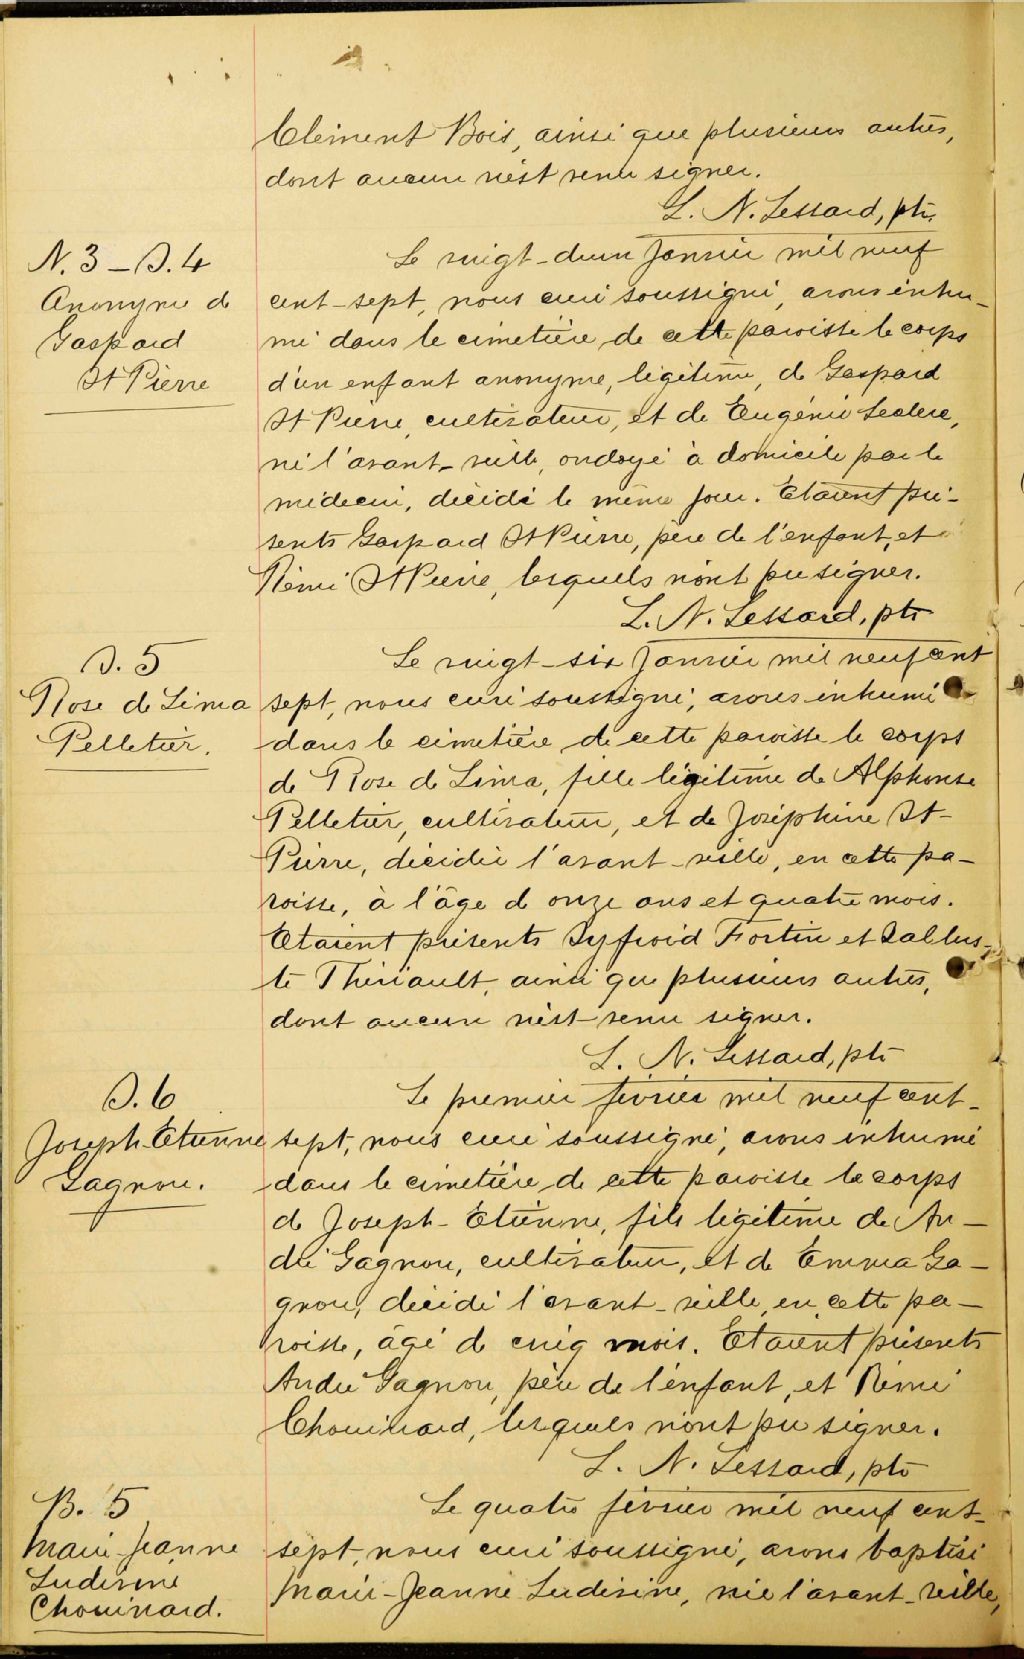 Clément Bois, ainsi que plusieurs autres,
dont aucun n'est venu signer.
L. N. Lessard, ptr.
N. 3 – S. 4
Anonyme de
Gaspard
St Pierre
Le vingt-deux Janvier mil neuf
cent-sept, nous curé soussigné, avons inhu-
mé dans le cimetière de cette paroisse le corps
d'un enfant anonyme, légitime, de Gaspard
St Pierre, cultivateur, et de Eugénie Leclerc,
né l'avant-veille, ondoyé à domicile par le
médecin, décédé le même jour. Etaient pré-
sents Gaspard St Pierre, père de l'enfant, et
Rémi St Pierre, lesquels n'ont pu signer.
L. N. Lessard, ptr
S. 5
Rose de Lima
Pelletier.
Le vingt-six Janvier mil neuf cent
sept, nous curé soussigné, avons inhumé
dans le cimetière de cette paroisse le corps
de Rose de Lima, fille légitime de Alphonse
Pelletier, cultivateur, et de Joséphine St-
Pierre, décédée l'avant-veille, en cette pa-
roisse, à l'âge de onze ans et quatre mois.
Etaient présents Syfroid Fortin et Sallus-
te Thériault, ainsi que plusieurs autres,
dont aucun n'est venu signer.
L. N. Lessard, ptr
S. 6
Joseph-Etienne
Gagnon.
Le premier février mil neuf cent-
sept, nous curé soussigné, avons inhumé
dans le cimetière de cette paroisse le corps
de Joseph-Etienne, fils légitime de An-
dré Gagnon, cultivateur, et de Emma Ga-
gnon, décédé l'avant-veille, en cette pa-
roisse, âgé de cinq mois. Etaient présents
André Gagnon, père de l'enfant, et Rémi
Chouinard, lesquels n'ont pu signer.
L. N. Lessard, ptr
B. 5
Marie-Jeanne
Ludivine
Chouinard.
Le quatre février mil neuf cent-
sept, nous curé soussigné, avons baptisé
Marie-Jeanne Ludivine, née l'avant-veille,